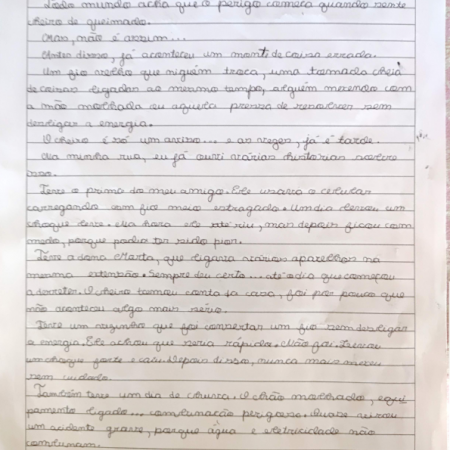 Todo mundo acha que o perigo começa quando sente
cheiro de queimado.
Mas, não é assim...
Antes disso, já aconteceu um monte de coisa errada.
Um fio velho que niguém troca, uma tomada cheia
de coisas ligadas ao mesmo tempo, alguém mexendo com
a mão molhada ou aquela pressa de resolver sem
desligar a energia.
O cheiro é só um aviso... e as vezes, já é tarde.
Na minha rua, eu já ouvi várias histórias sobre
isso.
Teve o primo do meu amigo. Ele usava o celular
carregando com fio meio estragado. Um dia levou um
choque leve. Na hora ele até riu, mas depois ficou com
medo, porque podia ter sido pior.
Teve a dona Marta, que ligava vários aparelhos na
mesma extensão. Sempre deu certo... até o dia que começou
a derreter. O cheiro tomou conta da casa, foi por pouco que
não aconteceu algo mais sério.
Teve um vizinho que foi consertar um fio sem desligar
a energia. Ele achou que seria rápido. Não foi. Levou
um choque forte e caiu. Depois disso, nunca mais mexeu
sem cuidado.
Também teve um dia de chuva. O chão molhado, equi
pamento ligado... combinação perigosa. Quase virou
um acidente grave, porque água e eletricidade não
combinam.